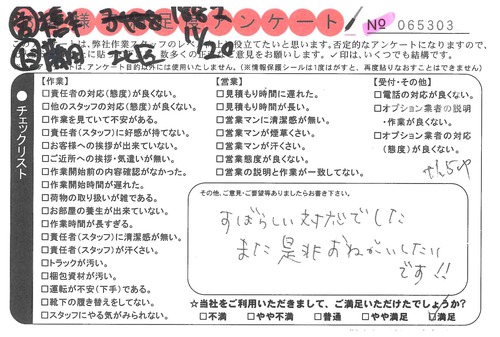 様 足度アンケート
№ 065303
このアンケートは、弊社作業スタッフのレベル向上に役立てたいと思います。否定的なアンケートになりますので、
に貼り 数多くのチェックとご意見をお願いします。✓印は、いくつでも結構です。
アンケートは、アンケート目的以外には使用いたしません。(※情報保護シールは1度はがすと、再度貼りなおすことはできません)
チェックリスト
【作業】
□責任者の対応(態度)が良くない。
□他のスタッフの対応(態度)が良くない。
□作業を見ていて不安がある。
□責任者(スタッフ)に好感が持てない。
□お客様への挨拶が出来ていない。
□ご近所への挨拶・気遣いが無い。
□作業開始前の内容確認がなかった。
□作業開始時間が遅れた。
□荷物の取り扱いが雑である。
□お部屋の養生が出来ていない。
□作業時間が長すぎる。
□責任者(スタッフ)に清潔感が無い。
□責任者(スタッフ)が汗くさい。
□トラックが汚い。
□梱包資材が汚い。
□運転が不安(下手)である。
□靴下の履き替えをしてない。
□スタッフにやる気がみられない。
【営業】
□見積もり時間に遅れた。
□見積もり時間が長い。
□営業マンに清潔感が無い。
□営業マンが煙草くさい。
□営業マンが汗くさい。
□営業態度が良くない。
□営業の説明と作業が一致してない。
【受付・その他】
□電話の対応が良くない。
□オプション業者の説明
・作業が良くない。
□オプション業者の対応
(態度)が良くない。
その他、ご意見・ご要望等ありましたらお書き下さい。
すばらしい対応でした
また是非おねがいしたい
です!!
☆当社をご利用いただきまして、ご満足いただけたでしょうか?
□不満 □やや不満 □普通 □やや満足 ☑満足